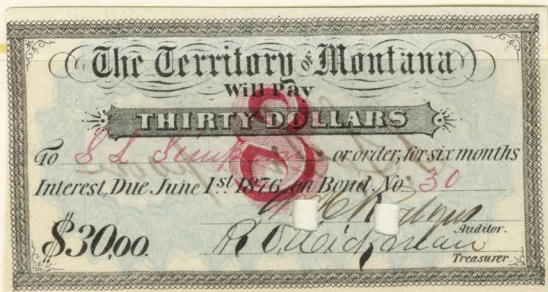 The Territory of Montana
Will Pay
THIRTY DOLLARS
To S L Simp or order, for six months
Interest, Due June 1st 1876, on Bond No 30
Auditor.
$30,00. R O Hickman
Treasurer